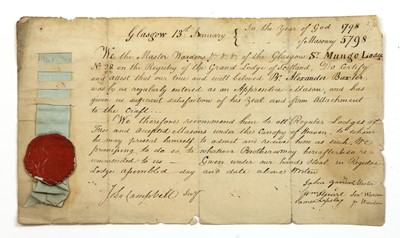 Glasgow 13th January { In the Year of God 1798
of Masonry 5798
We the Master Wardens &c &c of the Glasgow St Mungo Lodge
No on the Registry of the Grand Lodge of Scotland, Do Certify
and attest that our true and well beloved Br Alexander Baxter
was by us regularly entered as an Apprentice Mason, and has
given us sufficient satisfaction of his Zeal and firm Attachment
to the Craft
We therefore recommend him to all Regular Lodges of
Free and Accepted Masons under the Canopy of Heaven to whom
he may present himself to admit and receive him as such, We
promising to do so, to whatever Brother may hereafter be so
recommended to us — Given under our hands & Seal, in Regular
Lodge assembled day and date above Written
John Master
John Campbell Secy Senr Warden
James Jr Warden